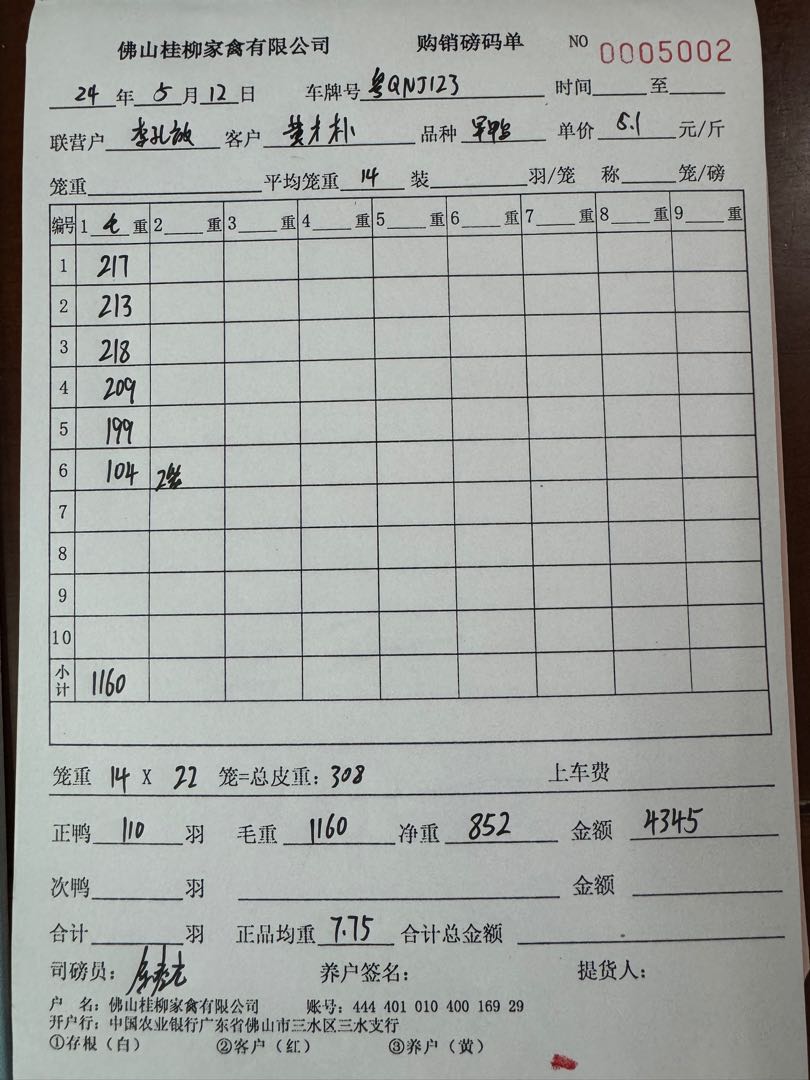 佛山桂柳家禽有限公司 购销磅码单 NO 0005002
24 年 5 月 12 日 车牌号 粤QNJ123 时间 至
联营户 李孔放 客户 黄才朴 品种 旱鸭 单价 5.1 元/斤
笼重 平均笼重 14 装 羽/笼 称 笼/磅
编号 1 毛 重 2 重 3 重 4 重 5 重 6 重 7 重 8 重 9 重
1 217
2 213
3 218
4 209
5 199
6 104 2笼
7
8
9
10
小计 1160
笼重 14 X 22 笼=总皮重: 308 上车费
正鸭 110 羽 毛重 1160 净重 852 金额 4345
次鸭 羽 金额
合计 羽 正品均重 7.75 合计总金额
司磅员: 养户签名: 提货人:
户 名: 佛山桂柳家禽有限公司 账号: 444 401 010 400 169 29
开户行: 中国农业银行广东省佛山市三水区三水支行
①存根（白） ②客户（红） ③养户（黄）